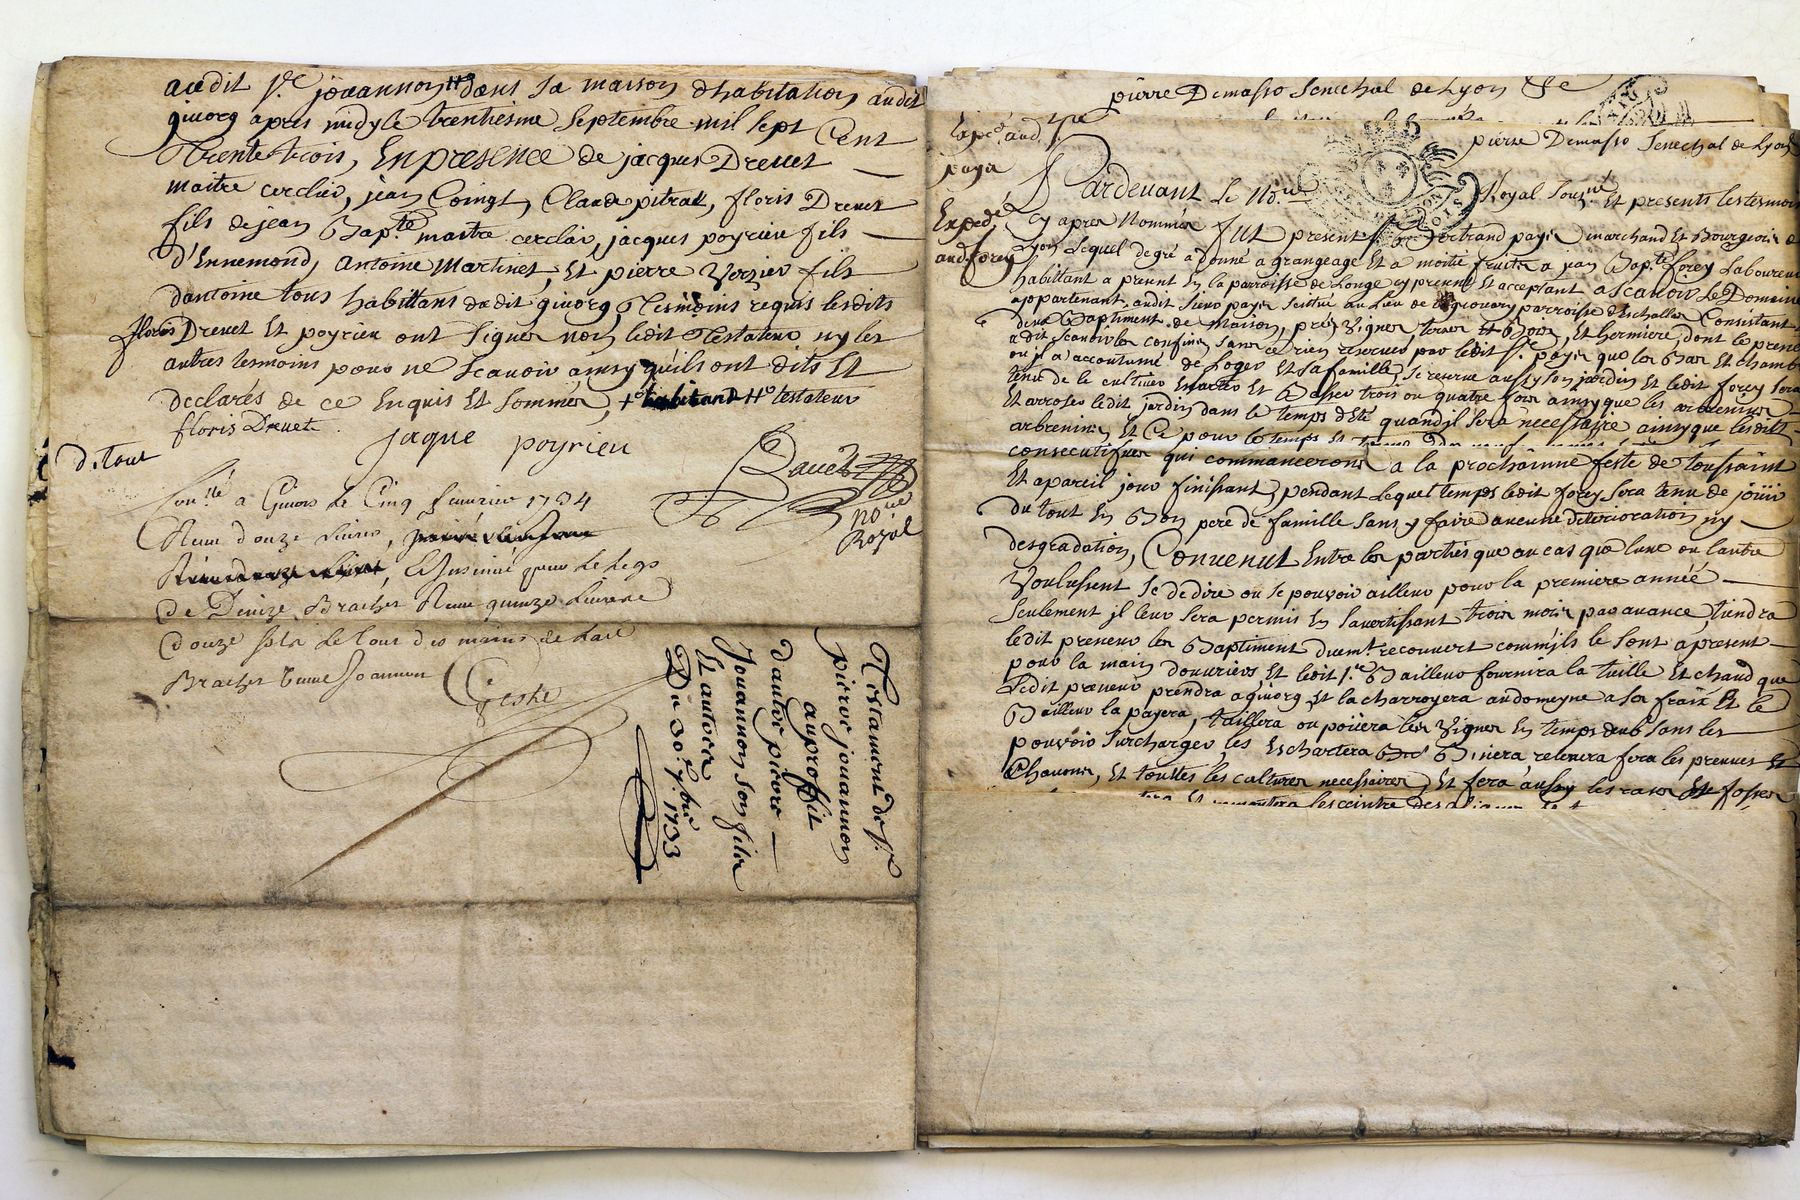 audit Sr. joüannon # dans sa maison d'habitation audit
givorg apres midy le trentiesme Septembre mil sept Cent
Trente trois, En presence de jacques Drevet
maitre cerclier, jean Coingt, Claude pitrat, floris Drevet
fils de jean Bapte. maitre cerclier, jacques poyrieu fils
d'Ennemond, Antoine Martinet, Et pierre Verzier fils
dantoine tous habittans dudit givorg Tesmoins requis lesdits
floris Drevet Et poyrieu ont signer non ledit Testateur ny les
autres tesmoins pour ne scavoir ainsy quils ont dits Et
declarés de ce Enquis Et sommer, + habitant # testateur
floris Drevet
jaque poyrieu
Nore.
Royal
ditour
Conllé a Givors le Cinq fevrier 1734
Receu douze livres,
Insinué pour le legs
de Denize Brachet Receu quinze livres
douze sols le tout des mains de
Brachet Joannon
Testament de Sr.
pierre jouannon
au proffit
dautre pierre
Jouannon son fils
Et autres
Du 30e. 7bre. 1733
pierre Demasso Senechal de Lyon &c
Expéd aud Sr.
payer
Expedé
aud forey
pierre Demasso Senechal de Lyon
Pardevant Le Nore. Royal Sousné. Et presents les tesmoins
Cy apres Nommer fut present Sr. Bertrand payer marchand Et Bourgeois de
Lyon Lequel de gré a donné a grangeage Et a moitie fruits a jean Bapte. forey Laboureur
habittant a present En la parroisse de Longe cy present Et acceptant ascavoir Le Domaine
appartenant audit Sieur payer scitué au Lieu de parroisse d'Eschallas Consistant
deux Baptiment de Maison, prés vignes terres Et Bois, Et hermiere, dont le preneur
a dit scavoir les confins sans ce rien reserver par ledit Sr. payer que les Bas Et chambre
ou il a accoutumé de Loger Et sa famille, se reserve aussy son jardin Et ledit forey sera
tenu de le cultiver Et trois ou quatre fois ainsy que les
Et arroser ledit jardin dans le temps d'Eté quand il sera necessaire ainsy que lesdits
Et Ce pour le temps Et
consecutifves qui commanceront a la prochainne feste de toussaint
Et apareil jour finissant, pendant lequel temps ledit forey sera tenu de joüir
du tout En Bon pere de famille sans y faire aucune deterioration ny
desgradation, Convenut Entre les parties que au cas que lune ou lautre
voulussent se dedire ou se pouvoir ailleur pour la premiere année
seulement il leur sera permis En savertissant trois mois par avance, tiendra
ledit preneur les Baptiment duemt. recouvert comm'jls le sont a present
pour la main douvriers, Et ledit Sr. Bailleur fournira la tuille Et chaud que
Ledit preneur prendra a givorg Et la charroyera audomeyne a ses fraix Et le
Bailleur la payera, taillera ou poüera les vignes En temps deub sans les
pouvoir surcharger, les Eschartera Binera relevera fera les preuves Et
Chavons, et touttes les cultures necessaires, Et fera aussy les rases Et fosses